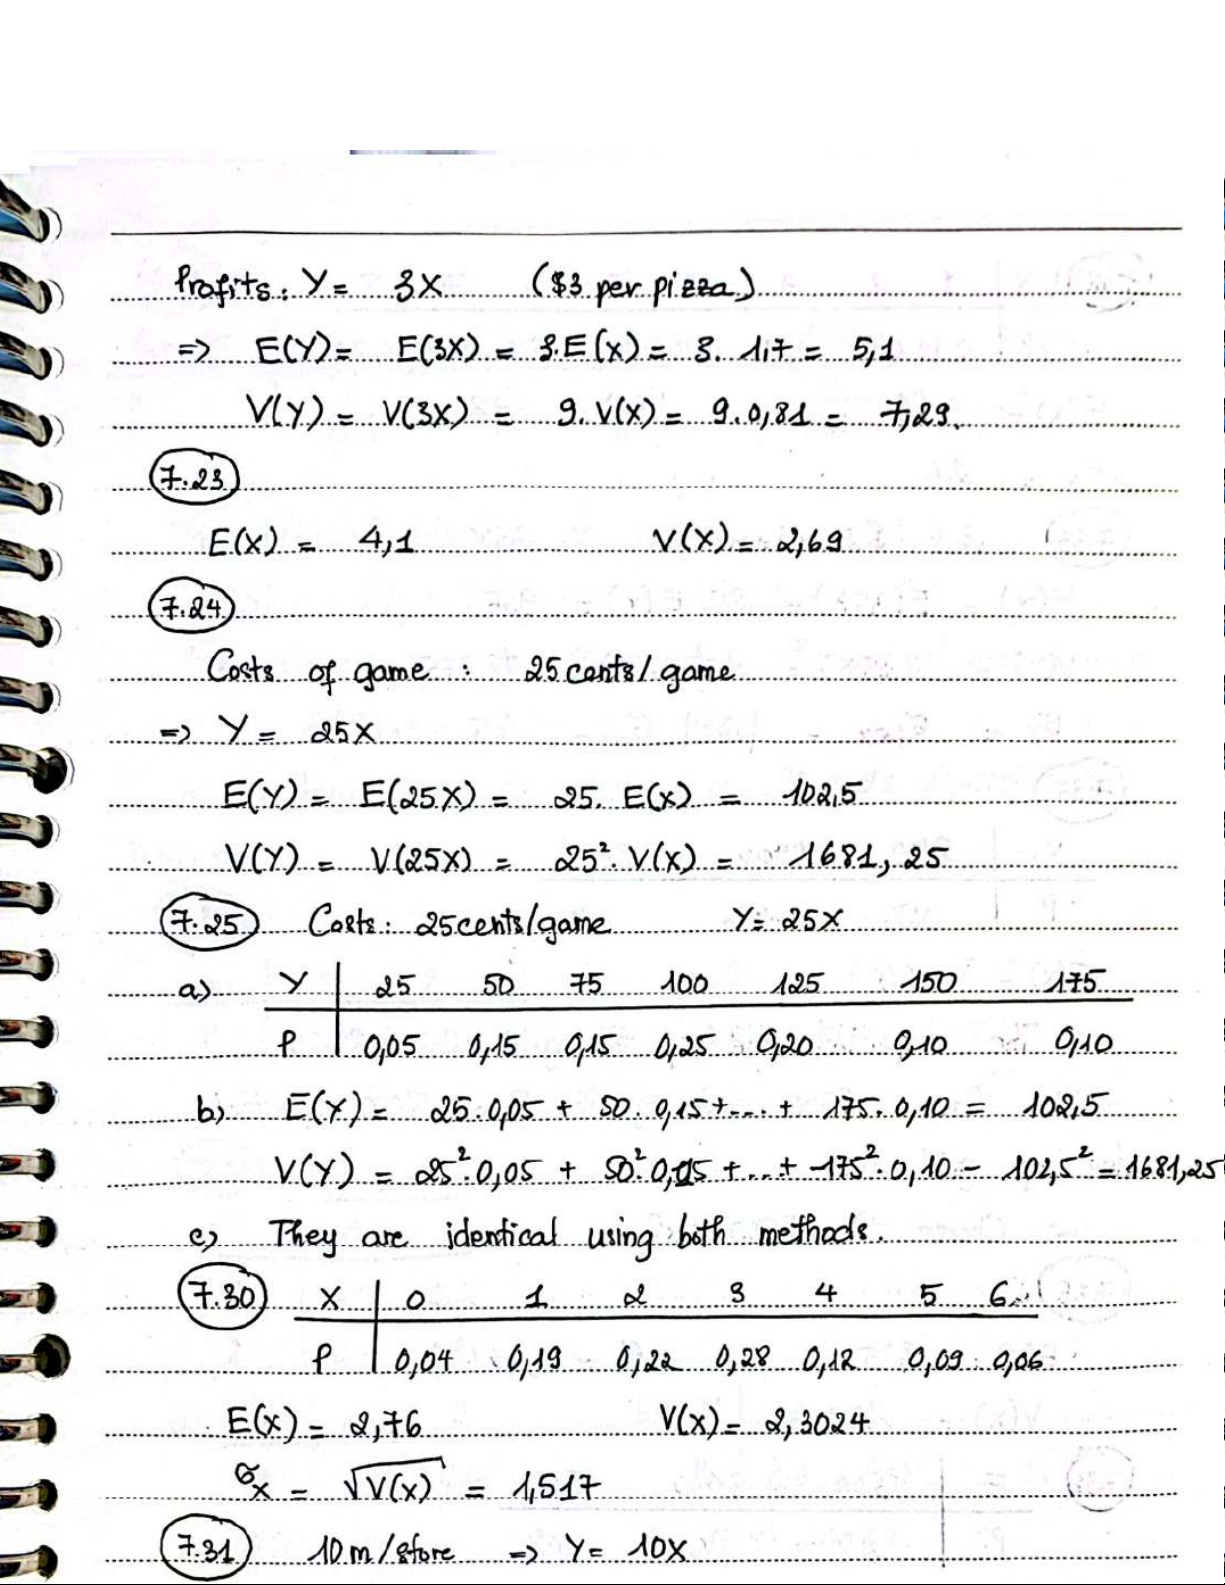 Profits: Y = 3X ($3 per pizza)
=> E(Y) = E(3X) = 3.E(X) = 3. 1,7 = 5,1
V(Y) = V(3X) = 9. V(X) = 9.0,81 = 7,29.
7.23
E(X) = 4,1 V(X) = 2,69
7.24
Costs of game : 25 cents / game
=> Y = 25X
E(Y) = E(25X) = 25. E(X) = 102,5
V(Y) = V(25X) = 25². V(X) = 1681,25
7.25 Costs: 25 cents/game Y= 25X
a) Y 25 50 75 100 125 150 175
P 0,05 0,15 0,15 0,25 0,20 0,10 0,10
b) E(Y) = 25.0,05 + 50. 0,15 +...+ 175. 0,10 = 102,5
V(Y) = 25².0,05 + 50².0,15 +...+ 175².0,10 - 102,5² = 1681,25
c) They are identical using both methods.
7.30 X 0 1 2 3 4 5 6
P 0,04 0,19 0,22 0,28 0,12 0,09 0,06
E(X) = 2,76 V(X) = 2,3024
σx = √V(X) = 1,517
7.31 10 m / store => Y = 10X